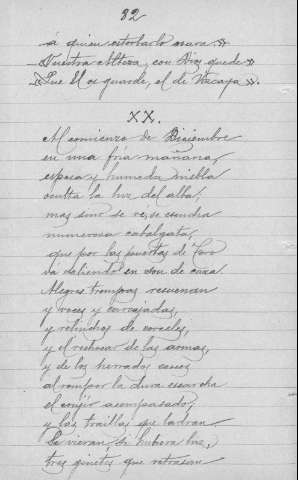 32
á quien estorbarlo osara.»
–«Vuestra Alteza, con Dios quede»
–«Que Él os guarde, el de Vizcaya».
XX.
Al comienzo de Diciembre
en una fría mañana,
espesa y húmeda niebla
oculta la luz del alba;
mas sino se ve, se escucha
numerosa cabalgata,
que por las puertas de Toro
vá saliendo en son de caza.
Alegres trompas resuenan
y voces y carcajadas,
y relinchos de corceles,
y el rechocar de las armas,
y de los herrados cascos
al romper la dura escarcha
el crujir acompasado,
y las traillas que ladran
Se vieran si hubiera luz,
tres ginetes que retrasan